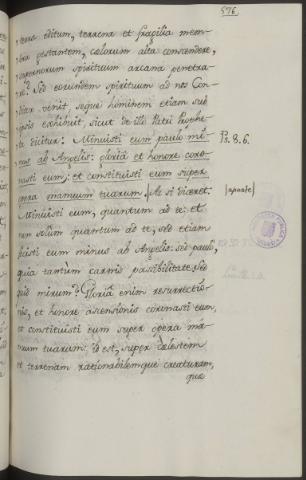 576.
terra editum, terrena et fragilia mem-
bra gestantem, cælorum alta conscendere,
supernorum spirituum arcana penetra-
re? Sed eorundem spirituum ad nos Con-
ditor venit, seque hominem etiam sub
ipsis exhibuit, sicut de illo Patri Prophe-
ta dicitur: Minuisti eum paulo mi-
nus ab Angelis: gloriâ et honore coro-
nasti eum; et constituisti eum super
opera manuum tuarum. Ac si diceret:
Minuisti eum, quantum ad te: et
non solum quantum ad te, sed etiam
fecisti eum minus ab Angelis: sed paulo,
quia tantum carnis passibilitate. Sed
quid mirum? Gloriâ enim resurrectio-
nis, et honore ascensionis coronasti eum,
et constituisti eum super opera ma-
nuum tuarum: id est, super cælestem
et terrenam rationabilemque creaturam,
quæ
Ps. 8. 6.